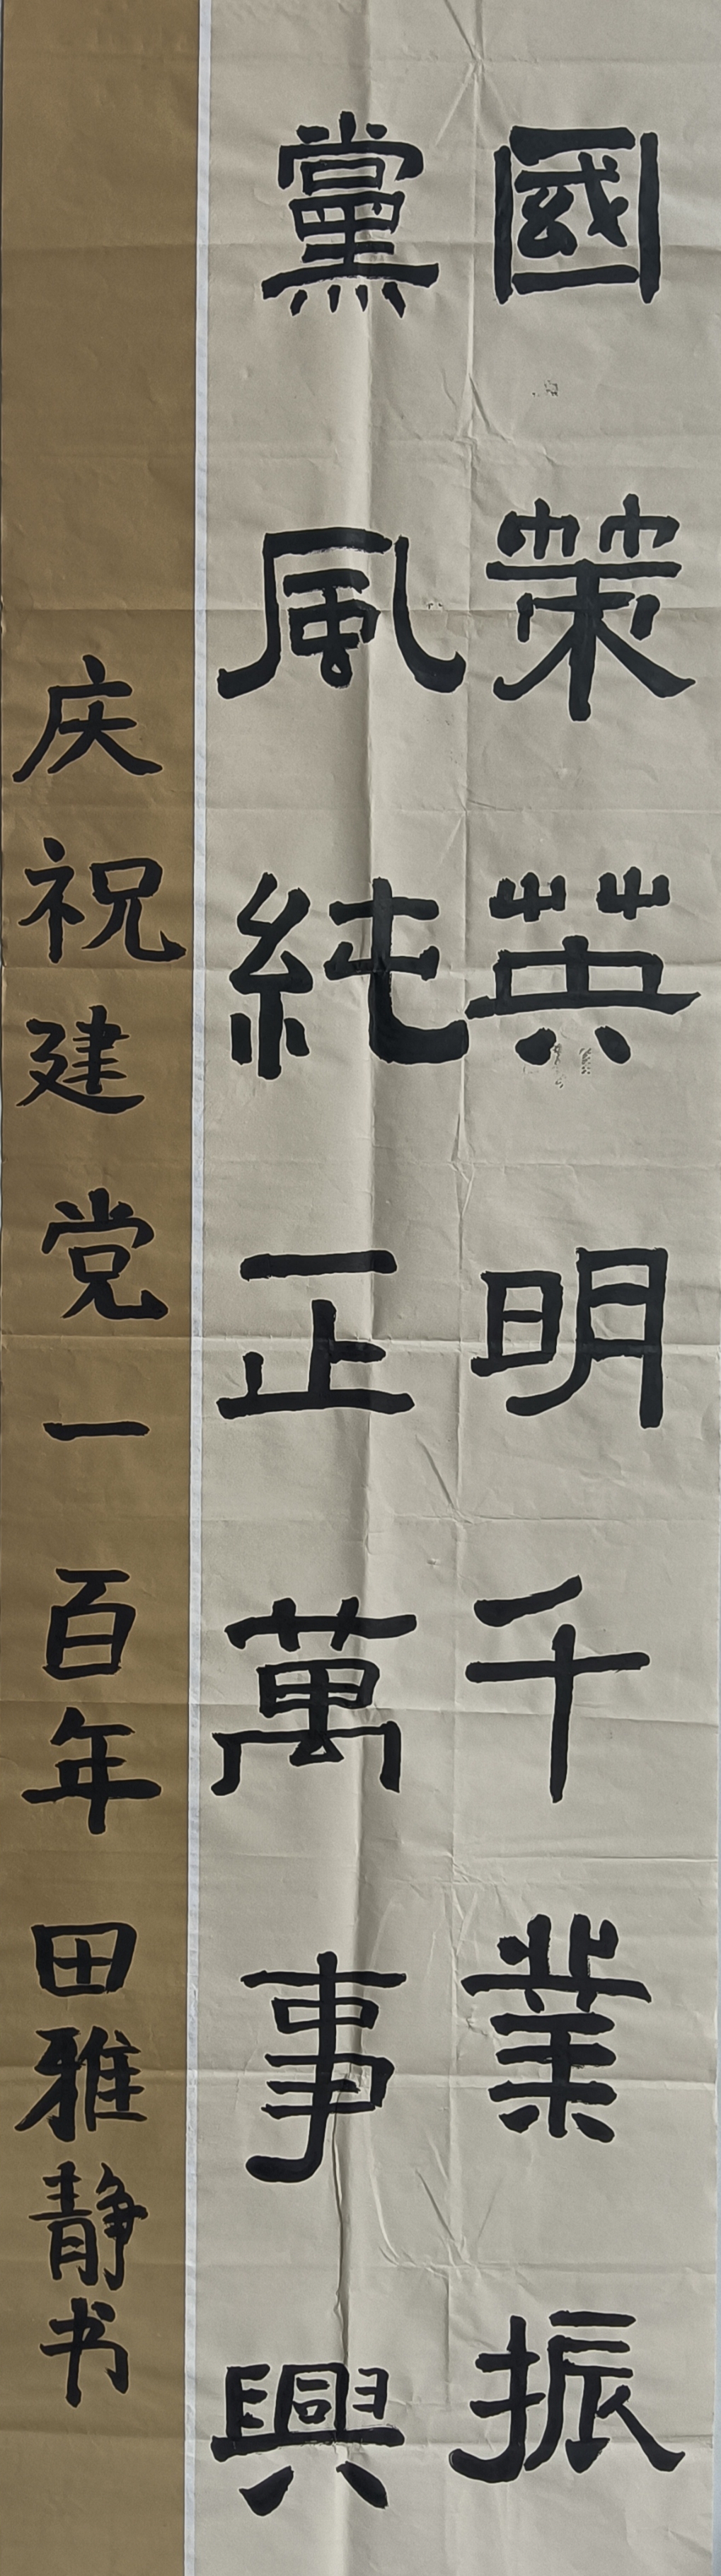 國策英明千業振
黨風純正萬事興
庆祝建党一百年 田雅靜书